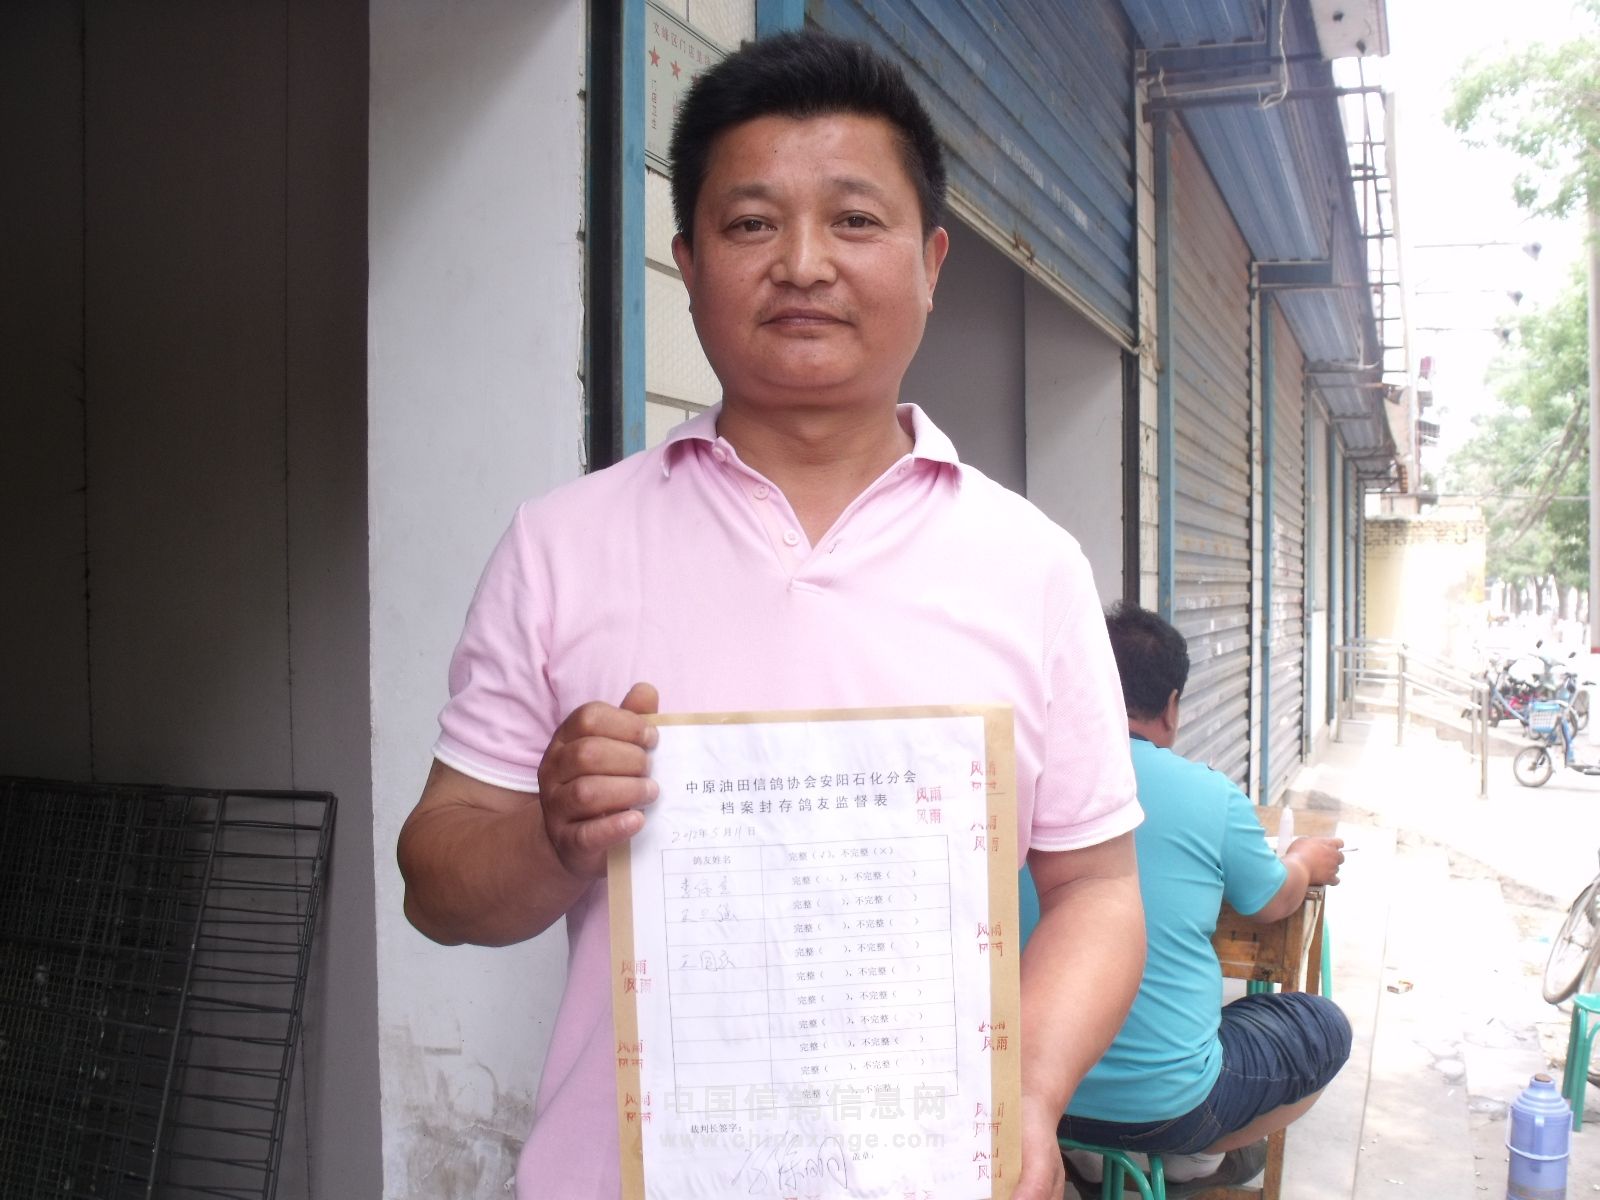 文峰区门店
门店卫生
中原油田信鸽协会安阳石化分会
档案封存鸽友监督表
2012年5月11日
鸽友姓名 完整（√），不完整（×）
完整（ ），不完整（ ）
完整（ ），不完整（ ）
完整（ ），不完整（ ）
王国庆 完整（ ），不完整（ ）
完整（ ），不完整（ ）
完整（ ），不完整（ ）
完整（ ），不完整（ ）
完整（ ），不完整（ ）
完整（ ），不完整（ ）
完整（ ），不完整（ ）
裁判长签字：
盖章：
风雨
风雨
风雨
风雨
风雨
风雨
风雨
风雨
中国信鸽信息网
www.chinaxinge.com